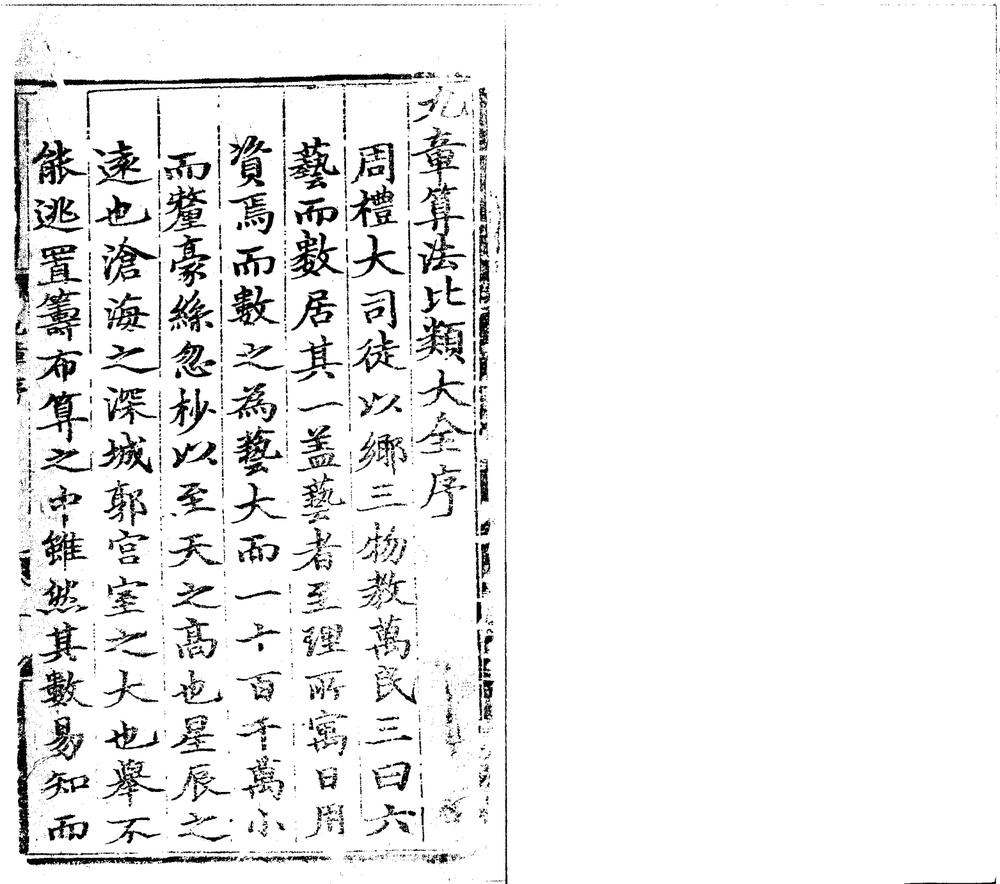 九章算法比類大全序
周禮大司徒以鄉三物教萬民三曰六
藝而數居其一蓋藝者至理所寓日用
資焉而數之為藝大而一十百千萬小
而釐豪絲忽杪以至天之高也星辰之
遠也滄海之深城郭宮室之大也舉不
能逃置籌布算之中雖然其數易知而